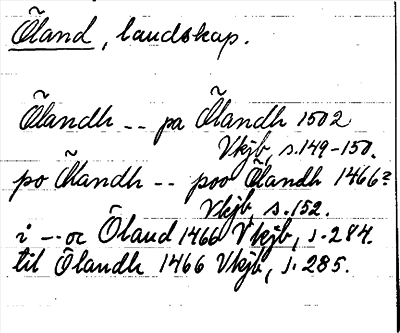 Öland, landskap.
Ölandh -- pa Ölandh 1502
Vkjb, s.149-150.
po Ölandh -- poo Ölandh 1466?
Vkjb, s.152.
i -- oc Öland 1466 Vkjb, s.284.
til Ölandh 1466 Vkjb, s.285.